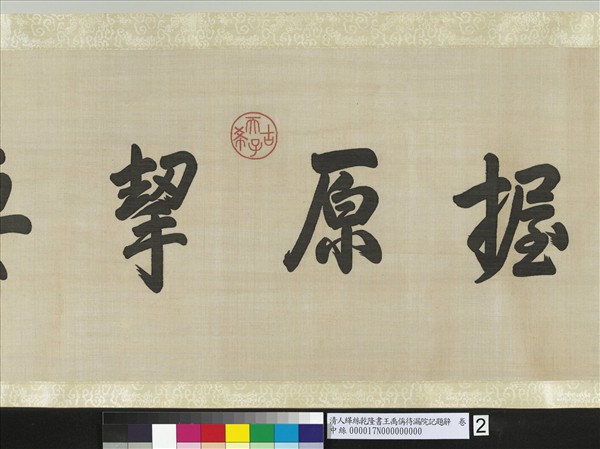 握原挈
古希天子
清人緙絲乾隆書王禹偁待漏院記題辭 卷
中絲 000017N000000000
2